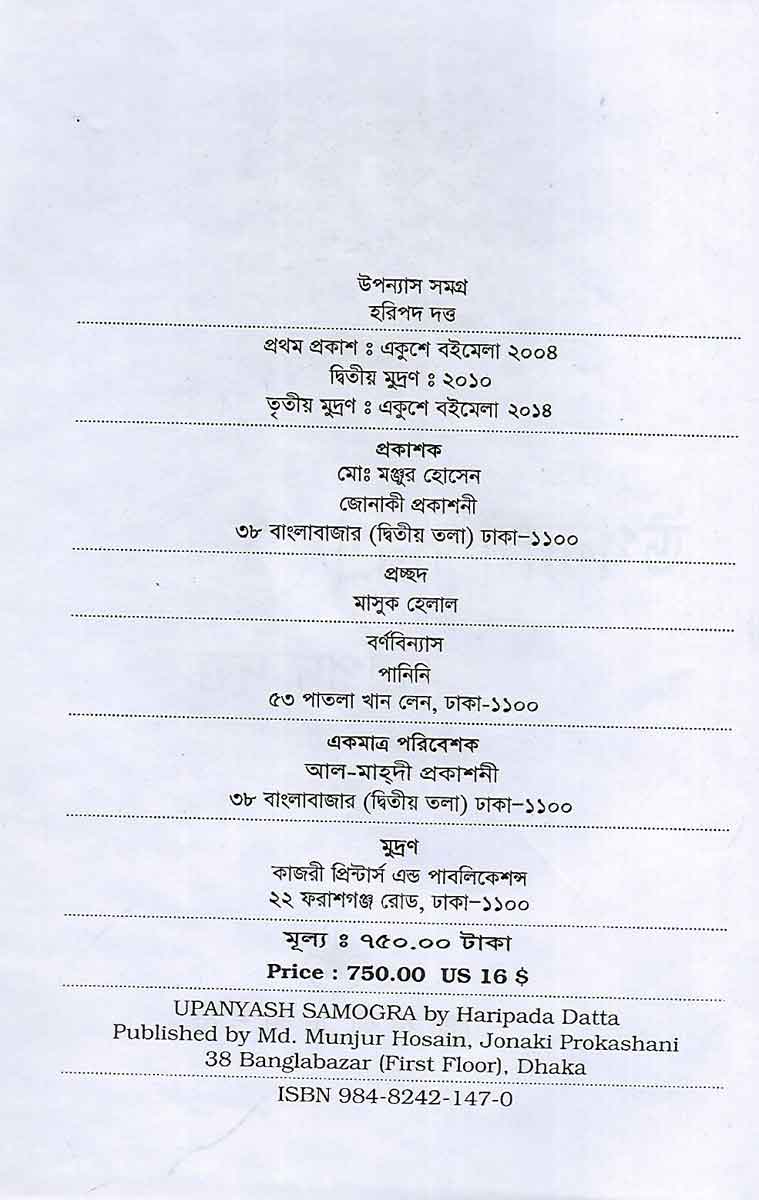 উপন্যাস সমগ্র
হরিপদ দত্ত
প্রথম প্রকাশ ঃ একুশে বইমেলা ২০০৪
দ্বিতীয় মুদ্রণ ঃ ২০১০
তৃতীয় মুদ্রণ ঃ একুশে বইমেলা ২০১৪
প্রকাশক
মোঃ মঞ্জুর হোসেন
জোনাকী প্রকাশনী
৩৮ বাংলাবাজার (দ্বিতীয় তলা) ঢাকা–১১০০
প্রচ্ছদ
মাসুক হেলাল
বর্ণবিন্যাস
পানিনি
৫৩ পাতলা খান লেন, ঢাকা-১১০০
একমাত্র পরিবেশক
আল-মাহ্দী প্রকাশনী
৩৮ বাংলাবাজার (দ্বিতীয় তলা) ঢাকা–১১০০
মুদ্রণ
কাজরী প্রিন্টার্স এন্ড পাবলিকেশন্স
২২ ফরাশগঞ্জ রোড, ঢাকা–১১০০
মূল্য ঃ ৭৫০.০০ টাকা
Price : 750.00 US 16 $
UPANYASH SAMOGRA by Haripada Datta
Published by Md. Munjur Hosain, Jonaki Prokashani
38 Banglabazar (First Floor), Dhaka
ISBN 984-8242-147-0